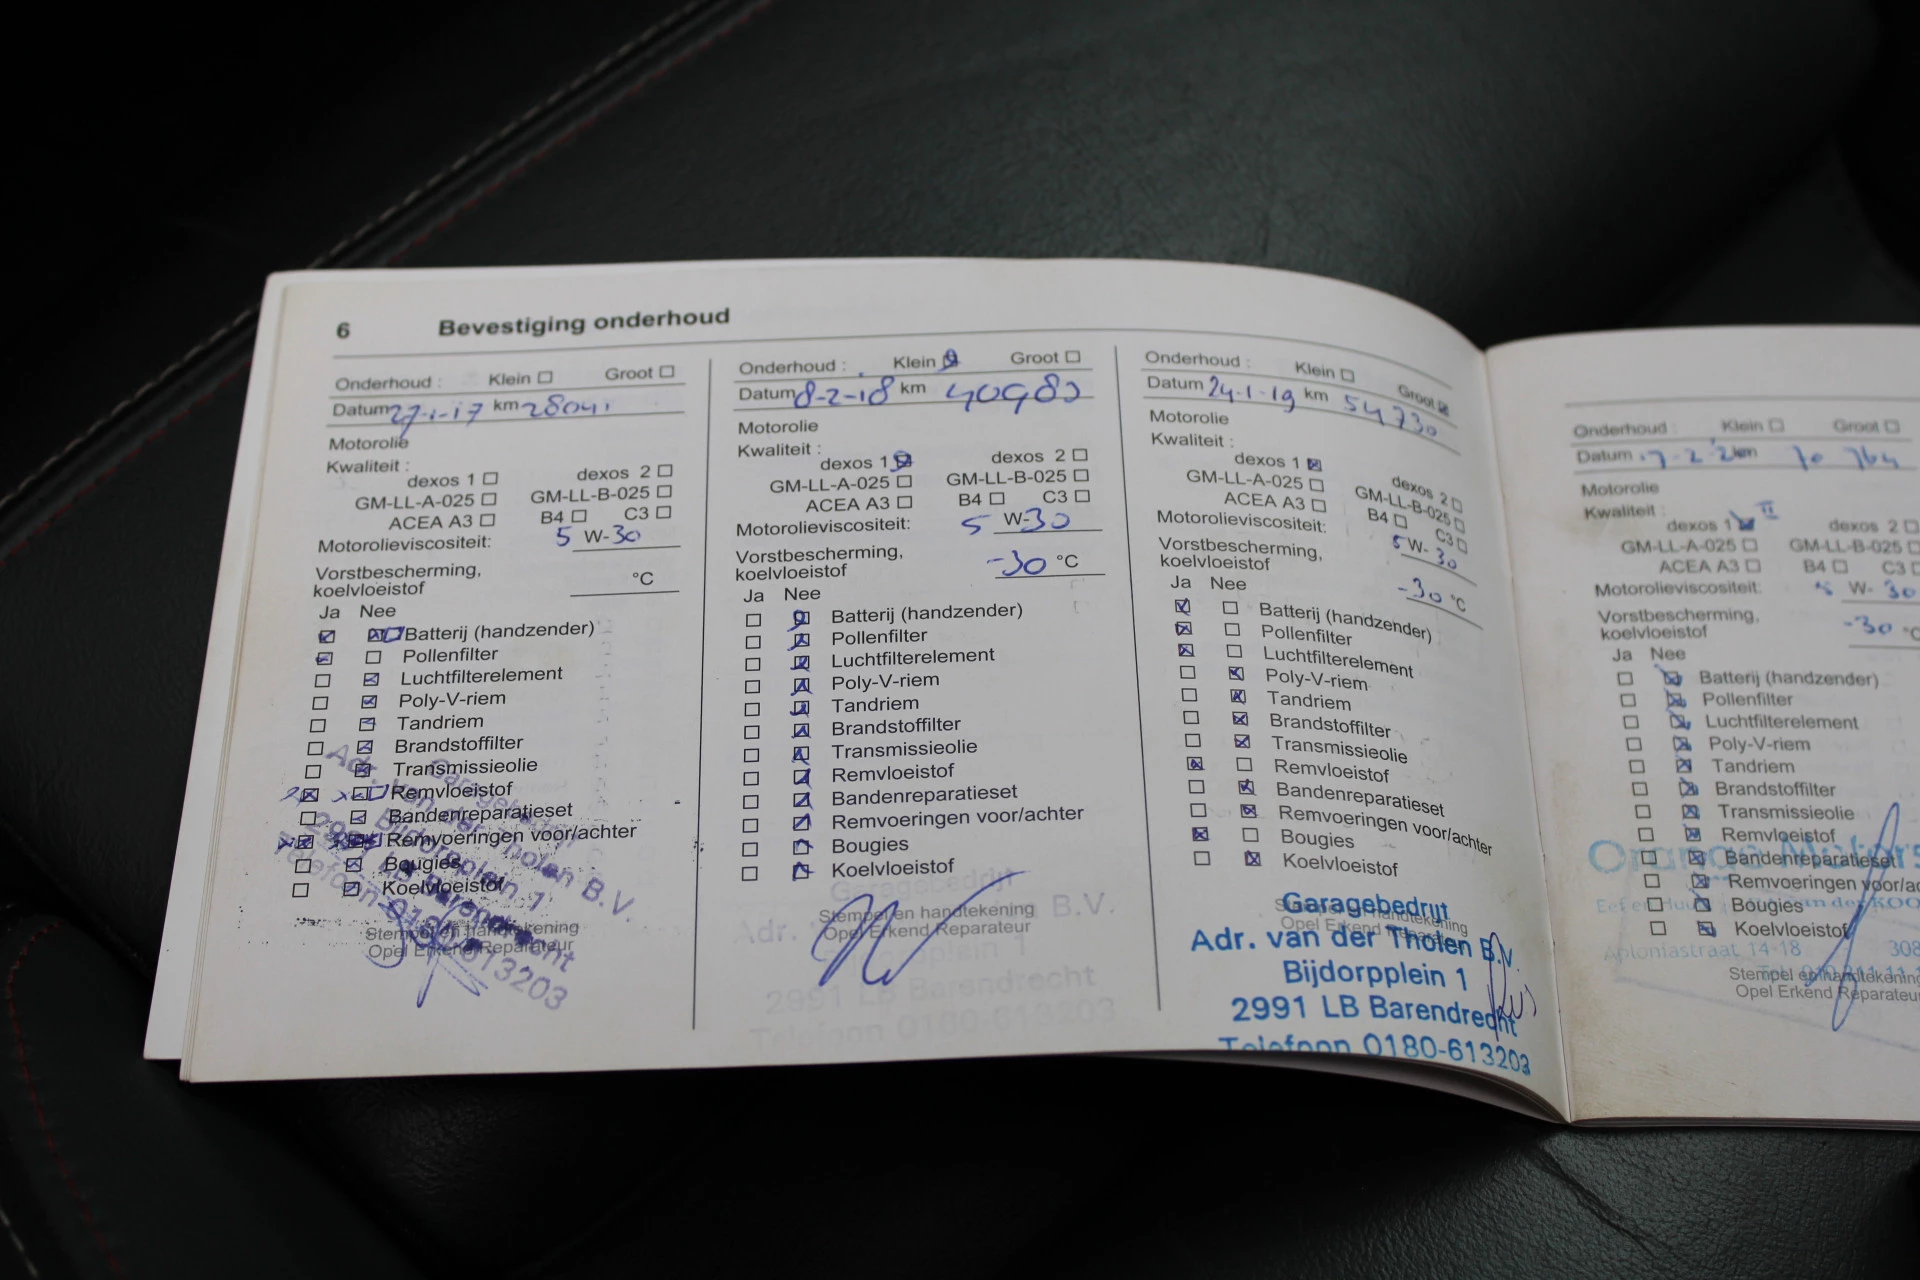 6 Bevestiging onderhoud
Onderhoud : Klein Groot
Datum 27-1-17 km 28041
Motorolie
Kwaliteit :
dexos 1 dexos 2
GM-LL-A-025 GM-LL-B-025
ACEA A3 B4 C3
Motorolieviscositeit: 5 W-30
Vorstbescherming,
koelvloeistof °C
Ja Nee
Batterij (handzender)
Pollenfilter
Luchtfilterelement
Poly-V-riem
Tandriem
Brandstoffilter
Transmissieolie
Remvloeistof
Bandenreparatieset
Remvoeringen voor/achter
Bougies
Koelvloeistof
Stempel en handtekening
Opel Erkend Reparateur
Garagebedrijf
Adr. van der Tholen B.V.
Bijdorpplein 1
2991 LB Barendrecht
Telefoon 0180-613203
Onderhoud : Klein Groot
Datum 8-2-18 km 40980
Motorolie
Kwaliteit :
dexos 1 dexos 2
GM-LL-A-025 GM-LL-B-025
ACEA A3 B4 C3
Motorolieviscositeit: 5 W-30
Vorstbescherming,
koelvloeistof -30 °C
Ja Nee
Batterij (handzender)
Pollenfilter
Luchtfilterelement
Poly-V-riem
Tandriem
Brandstoffilter
Transmissieolie
Remvloeistof
Bandenreparatieset
Remvoeringen voor/achter
Bougies
Koelvloeistof
Stempel en handtekening
Opel Erkend Reparateur
Garagebedrijf
Adr. B.V.
Bijdorpplein 1
2991 LB Barendrecht
Telefoon 0180-613203
Onderhoud : Klein Groot
Datum 24-1-19 km 54730
Motorolie
Kwaliteit :
dexos 1 dexos 2
GM-LL-A-025 GM-LL-B-025
ACEA A3 B4 C3
Motorolieviscositeit: 5 W-30
Vorstbescherming,
koelvloeistof -30 °C
Ja Nee
Batterij (handzender)
Pollenfilter
Luchtfilterelement
Poly-V-riem
Tandriem
Brandstoffilter
Transmissieolie
Remvloeistof
Bandenreparatieset
Remvoeringen voor/achter
Bougies
Koelvloeistof
Stempel en handtekening
Opel Erkend Reparateur
Garagebedrijf
Adr. van der Tholen B.V.
Bijdorpplein 1
2991 LB Barendrecht
Telefoon 0180-613203
Onderhoud : Klein Groot
Datum km 70 764
Motorolie
Kwaliteit : II
dexos 1 dexos 2
GM-LL-A-025 GM-LL-B-025
ACEA A3 B4 C3
Motorolieviscositeit: 5 W- 30
Vorstbescherming,
koelvloeistof -30 °C
Ja Nee
Batterij (handzender)
Pollenfilter
Luchtfilterelement
Poly-V-riem
Tandriem
Brandstoffilter
Transmissieolie
Remvloeistof
Bandenreparatieset
Remvoeringen voor/ac
Bougies
Koelvloeistof
Stempel en handtekening
Opel Erkend Reparateur
Orange Motors
Aploniastraat 14-18 308